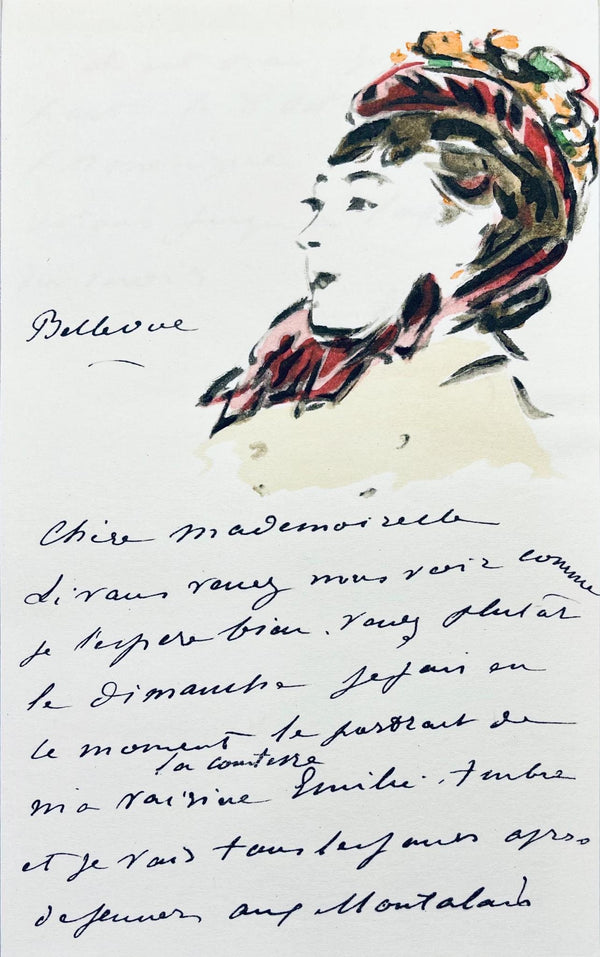 Bellevue
Chère mademoiselle
Si vous venez nous voir comme
je l'espère bien. Venez plutôt
le dimanche je fais en
ce moment le portrait de
la comtesse
ma voisine Emilie Ambre
et je vais tous les jours après
dejeuner aux Montalais